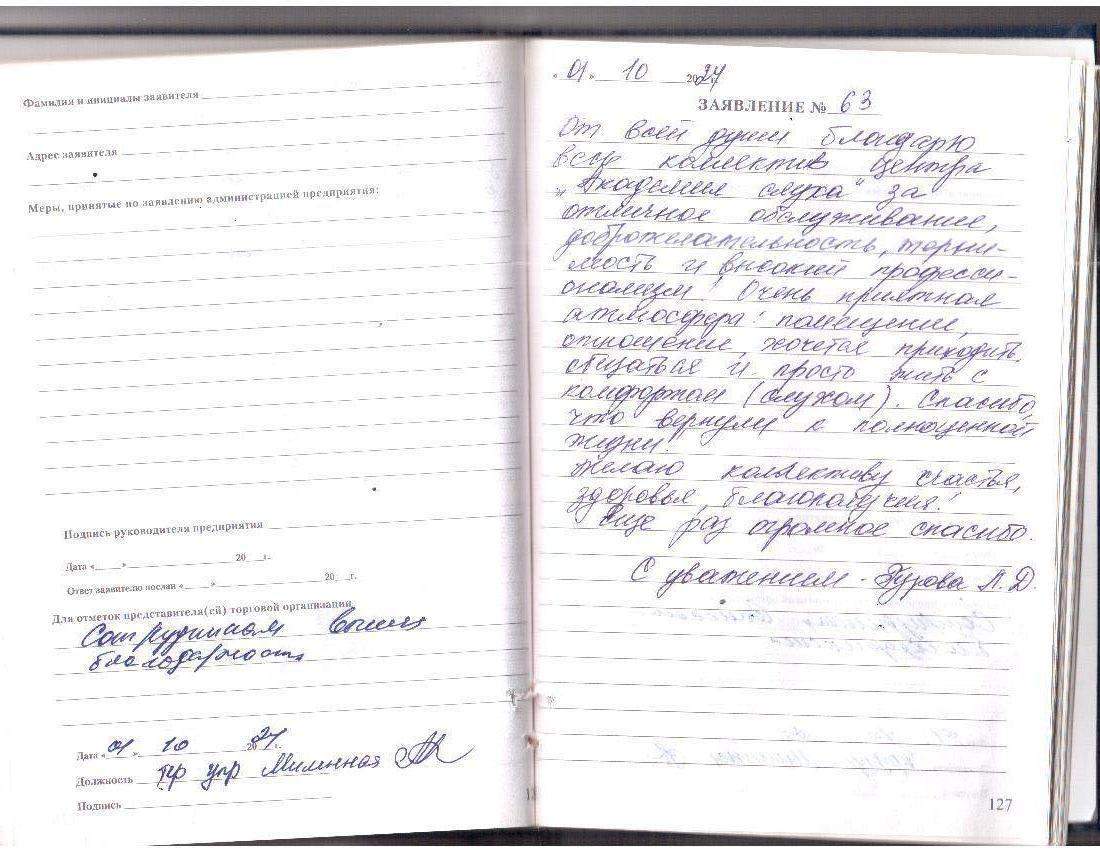 Фамилия и инициалы заявителя
Адрес заявителя
Меры, принятые по заявлению администрацией предприятия:
Подпись руководителя предприятия
Дата « » 20 г.
Ответ заявителю послан « » 20 г.
Для отметок представителя(ей) торговой организации
Сотрудникам вынести
благодарность
Дата « 01 » 10 20 24 г.
Должность
Подпись
« 01 » 10 20 24 г.
ЗАЯВЛЕНИЕ № 63
От всей души благодарю
весь коллектив центра
„Академия слуха" за
отличное обслуживание,
доброжелательность, терпи-
мость и высокий професси-
онализм! Очень приятная
атмосфера: помещение,
отношение, хочется приходить,
общаться и просто жить с
комфортом (слухом). Спасибо,
что вернули к полноценной
жизни!
Желаю коллективу счастья,
здоровья, благополучия!
Еще раз огромное спасибо.
С уважением - Гурова Л. Д.
127